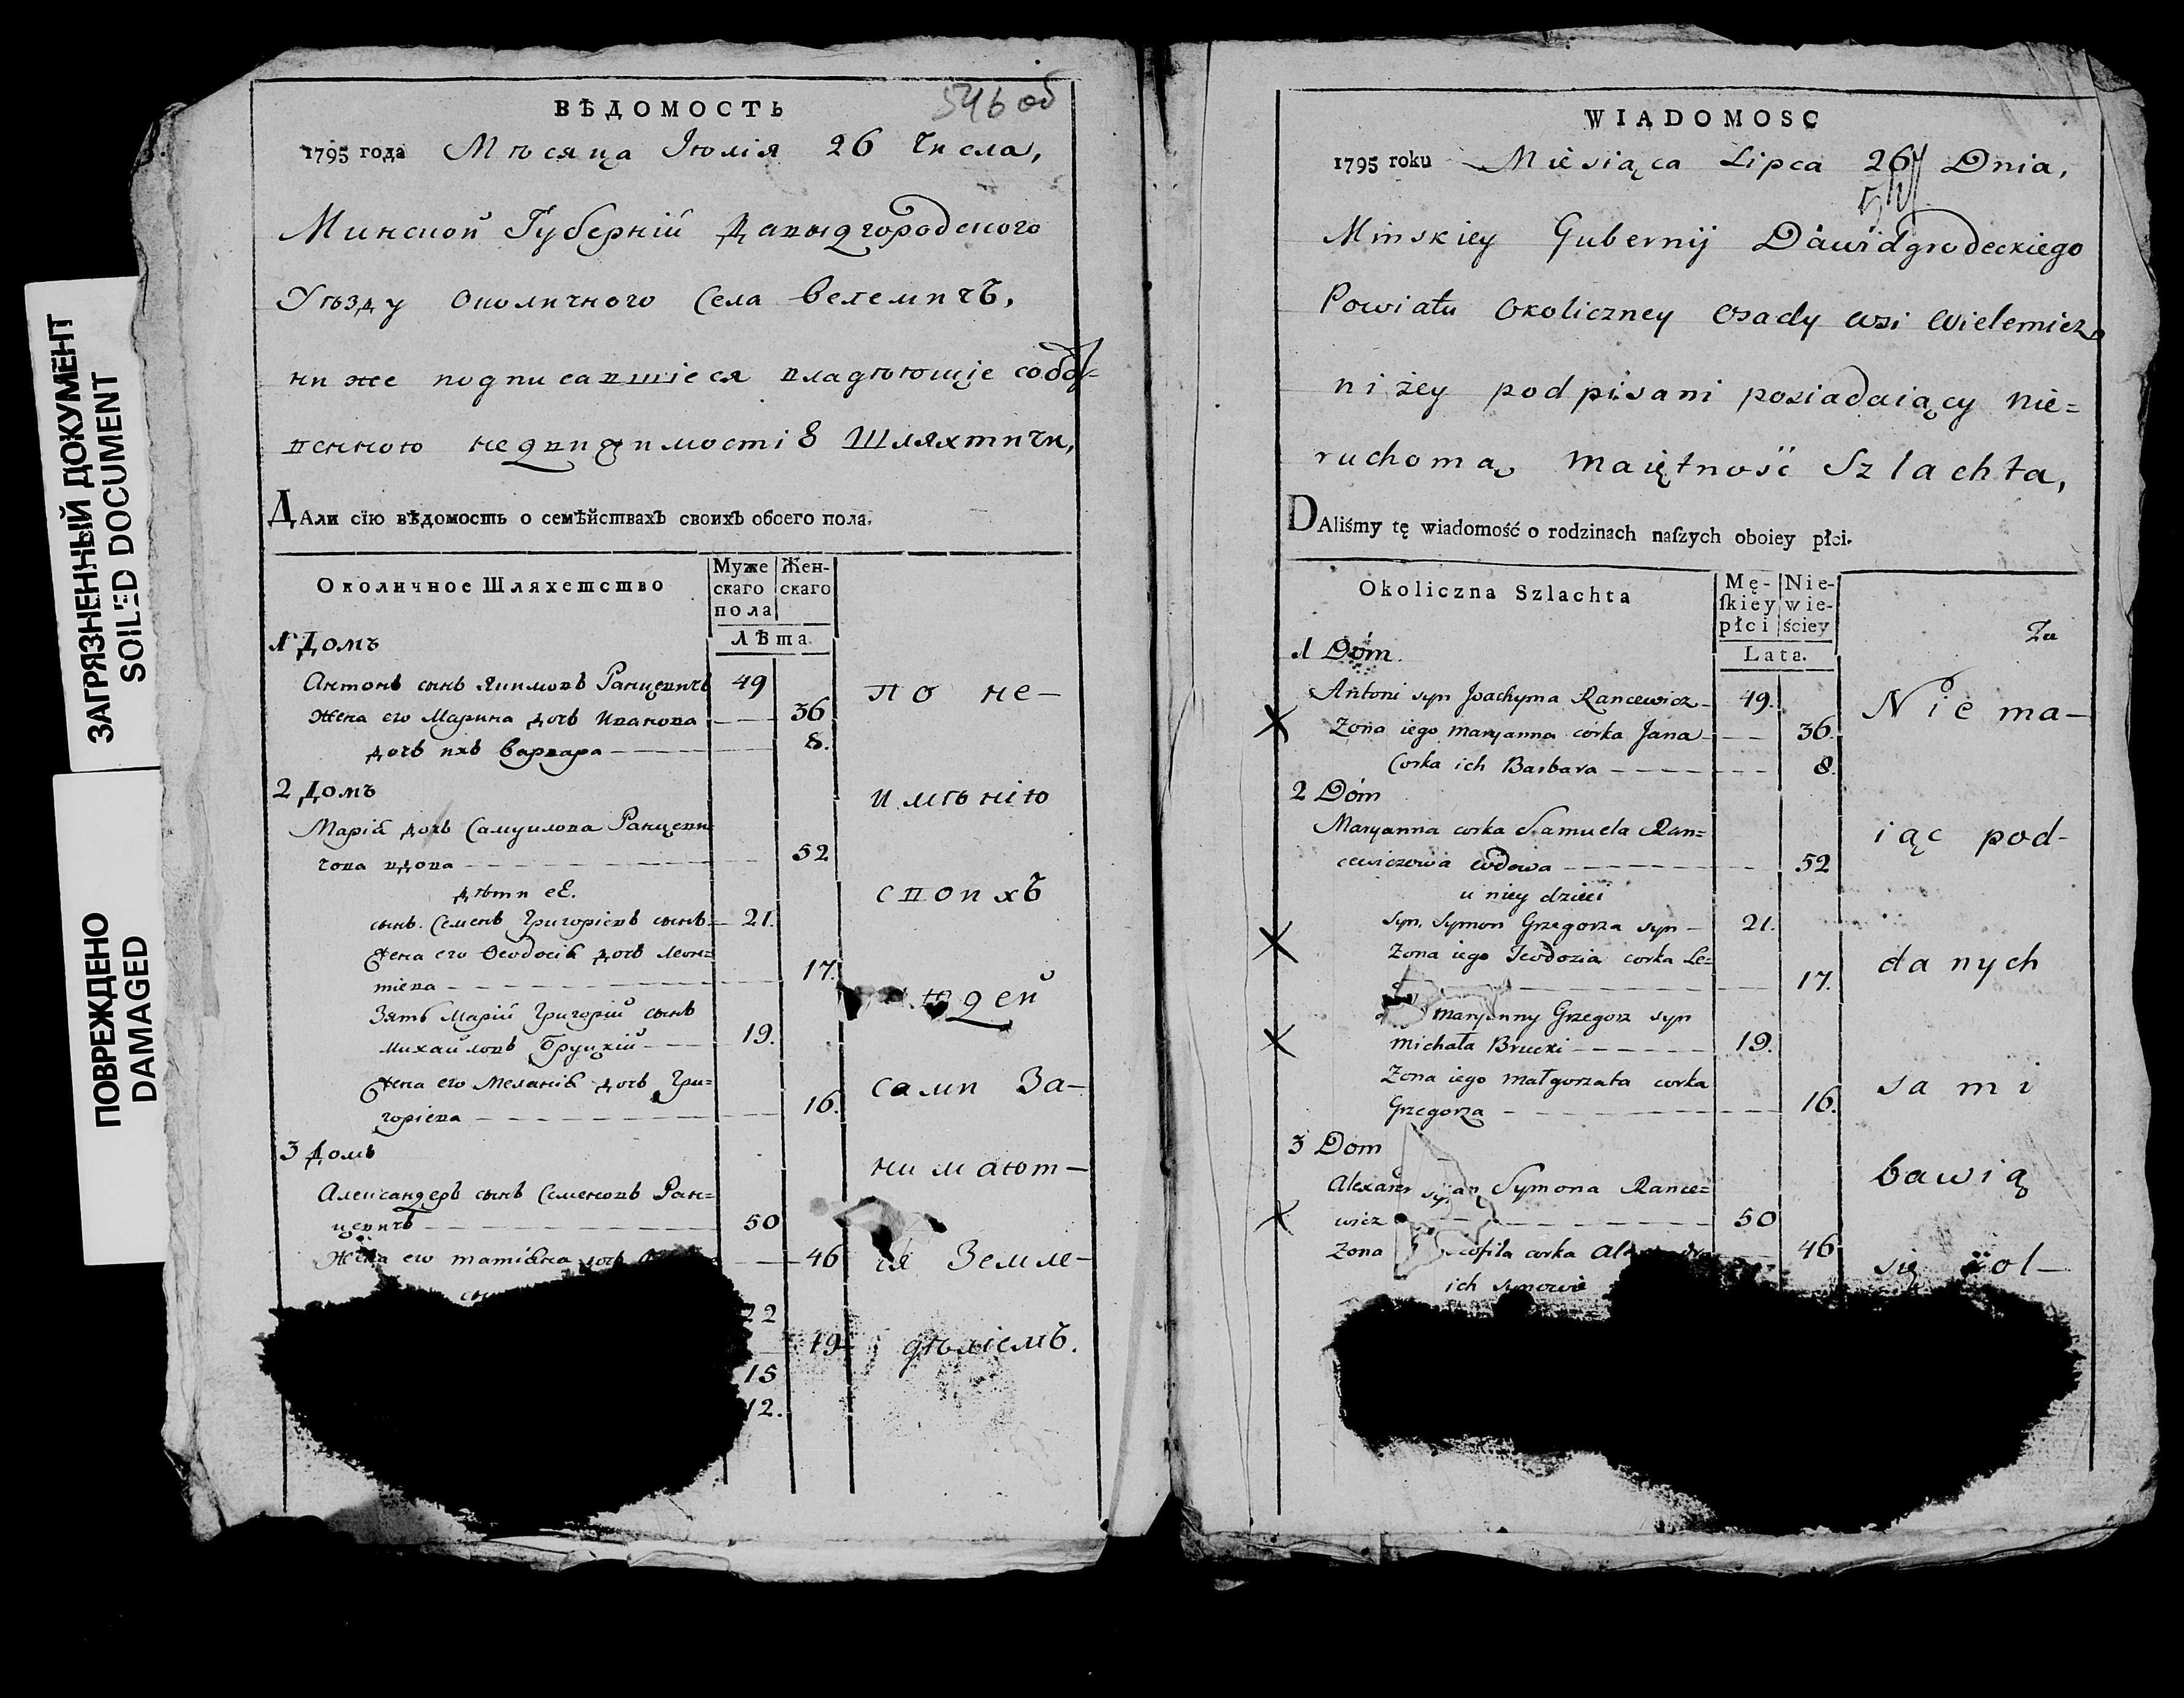 ЗАГРЯЗНЕННЫЙ ДОКУМЕНТ
SOILED DOCUMENT
ПОВРЕЖДЕНО
DAMAGED
546 об
ВѢДОМОСТЬ
1795 года Мѣсяца Іюлія 26 Числа,
Минской Губерніи Давыдгородского
Уѣзду Околичного Села Велемичъ,
ниже подписавшіеся владѣющіе собс=
венною недвижимостію Шляхтичи,
ДАли сїю вѣдомость о семѣйствахъ своихъ обоего пола.
Околичное Шляхетство
Муже
скаго
пола
Жен-
скаго
Лѣта.
1 Домъ
Антонъ сынъ Якимовъ Ранцевичъ 49
Жена его Марина дочь Иванова 36
дочь ихъ Варвара 8.
2 Домъ
Марія дочь Самуилова Ранцеви=
чова вдова 52
дѣти еѣ.
сынъ. Семенъ Григоріевъ сынъ 21.
Жена его Ѳеодосія дочь Леон=
тіева 17.
Зять Маріи Григорій сынъ
Михайловъ Бруцкій 19.
Жена его Меланія дочь Гри=
горіева 16.
3 Домъ
Александеръ сынъ Семеновъ Ран=
цевичъ 50
Жена его татіана дочь 46
22
19
15
12.
по не-
имѣнію
своихъ
людей
сами За-
нимают-
ся Земле-
дѣліемъ.
WIADOMOSC
1795 roku Miesiąca Lipca 26 Dnia,
Minskiey Gubernij Dawidgrodeckiego
Powiatu Okoliczney Osady wsi Wielemicz,
niżey podpisani posiadaiący nie=
ruchomą maiętność Szlachta,
DAliśmy tę wiadomość o rodzinach naſzych oboiey płci.
Okoliczna Szlachta
Mę-
ſkiey
płci
Nie-
wie-
ściey
Lata.
1 Dóm.
Antoni syn Joachyma Rancewicz 49.
Zona iego maryanna córka Jana 36.
Corka ich Barbara 8.
2 Dóm
Maryanna corka Samuela Ran=
cewiczowa wdowa 52
u niey dzieci
syn. Symon Grzegorza syn 21.
Zona iego Teodozia corka Le=
17.
maryanny Grzegorz syn
michała Brucki 19.
Zona iego małgorzata corka
Grzegorza 16.
3 Dom
Alexander syn Symona Rance=
wicz 50
Zona corka 46
ich synowie
Za
Nie ma-
iąc pod-
danych
sami
bawią
się rol-